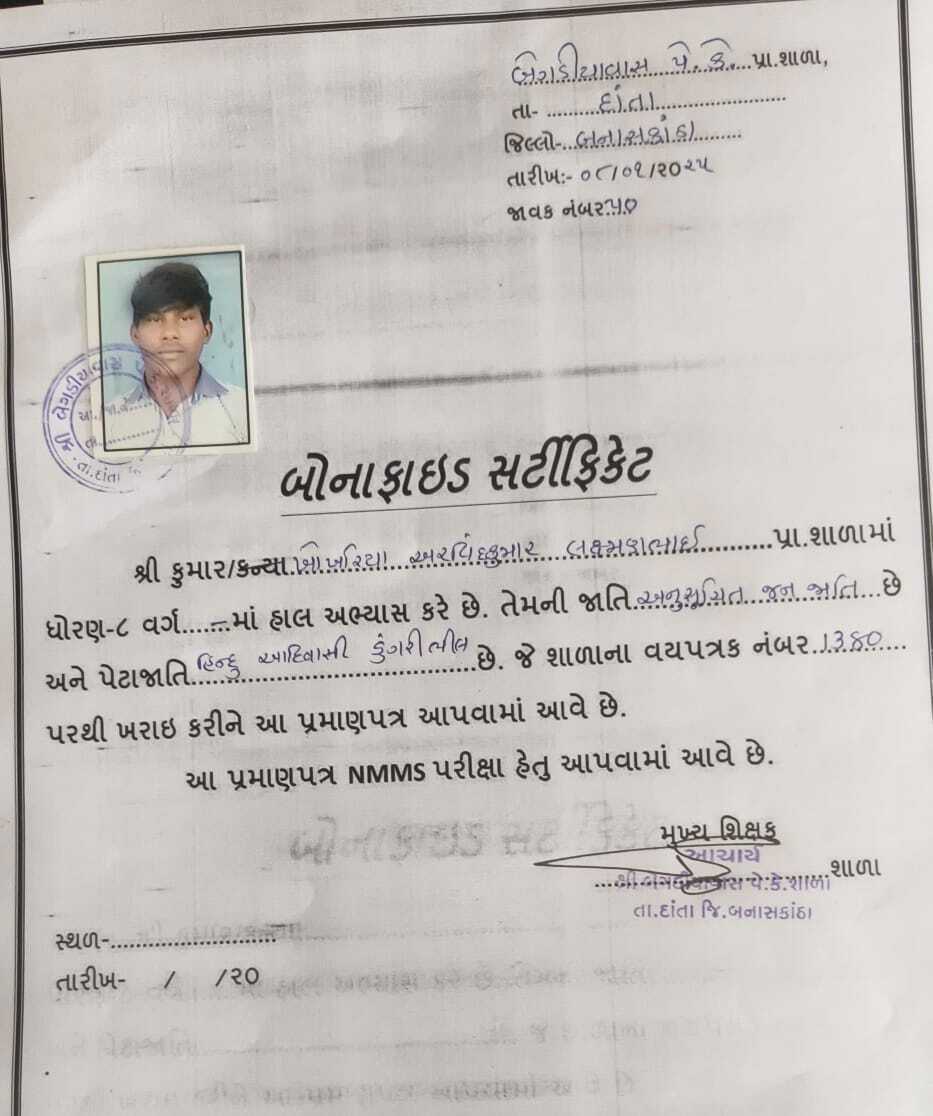 બેગડીયાવાસ પે. કે. પ્રા.શાળા,
તા- દાંતા
જિલ્લો- બનાસકાંઠા
તારીખ:- ૦૮/૦૧/૨૦૨૫
જાવક નંબર ૫૦
શ્રી બેગડીયાવાસ
આ./જા.વ.
તા.
તા.દાંતા
બોનાફાઇડ સર્ટીફિકેટ
શ્રી કુમાર/કન્યા ખોખરિયા અરવિંદકુમાર લક્ષ્મણભાઈ પ્રા.શાળામાં
ધોરણ-૮ વર્ગ.....–..માં હાલ અભ્યાસ કરે છે. તેમની જાતિ અનુસૂચિત જન જાતિ છે
અને પેટાજાતિ હિન્દુ આદિવાસી ડુંગરી ભીલ છે. જે શાળાના વયપત્રક નંબર ૧૩૪૦
પરથી ખરાઇ કરીને આ પ્રમાણપત્ર આપવામાં આવે છે.
આ પ્રમાણપત્ર NMMS પરીક્ષા હેતુ આપવામાં આવે છે.
મુખ્ય શિક્ષક
આચાર્ય
શ્રી બેગડીયાવાસ પે.કે.શાળા શાળા
તા.દાંતા જિ.બનાસકાંઠા
સ્થળ-
તારીખ- / /૨૦